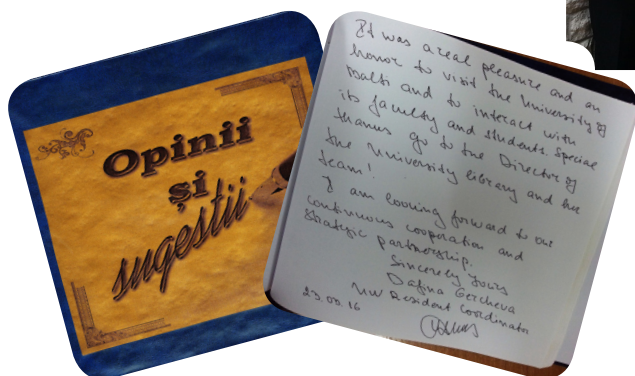 Opinii
și
sugestii
It was a real pleasure and an
honor to visit the University of
Balti and to interact with
its faculty and students. Special
thanks go to the Director of
the University library and her
team!
I am looking forward to our
continuous cooperation and
strategic partnership.
Sincerely yours
Dafina Gercheva
UN Resident Coordinator
23.09.16